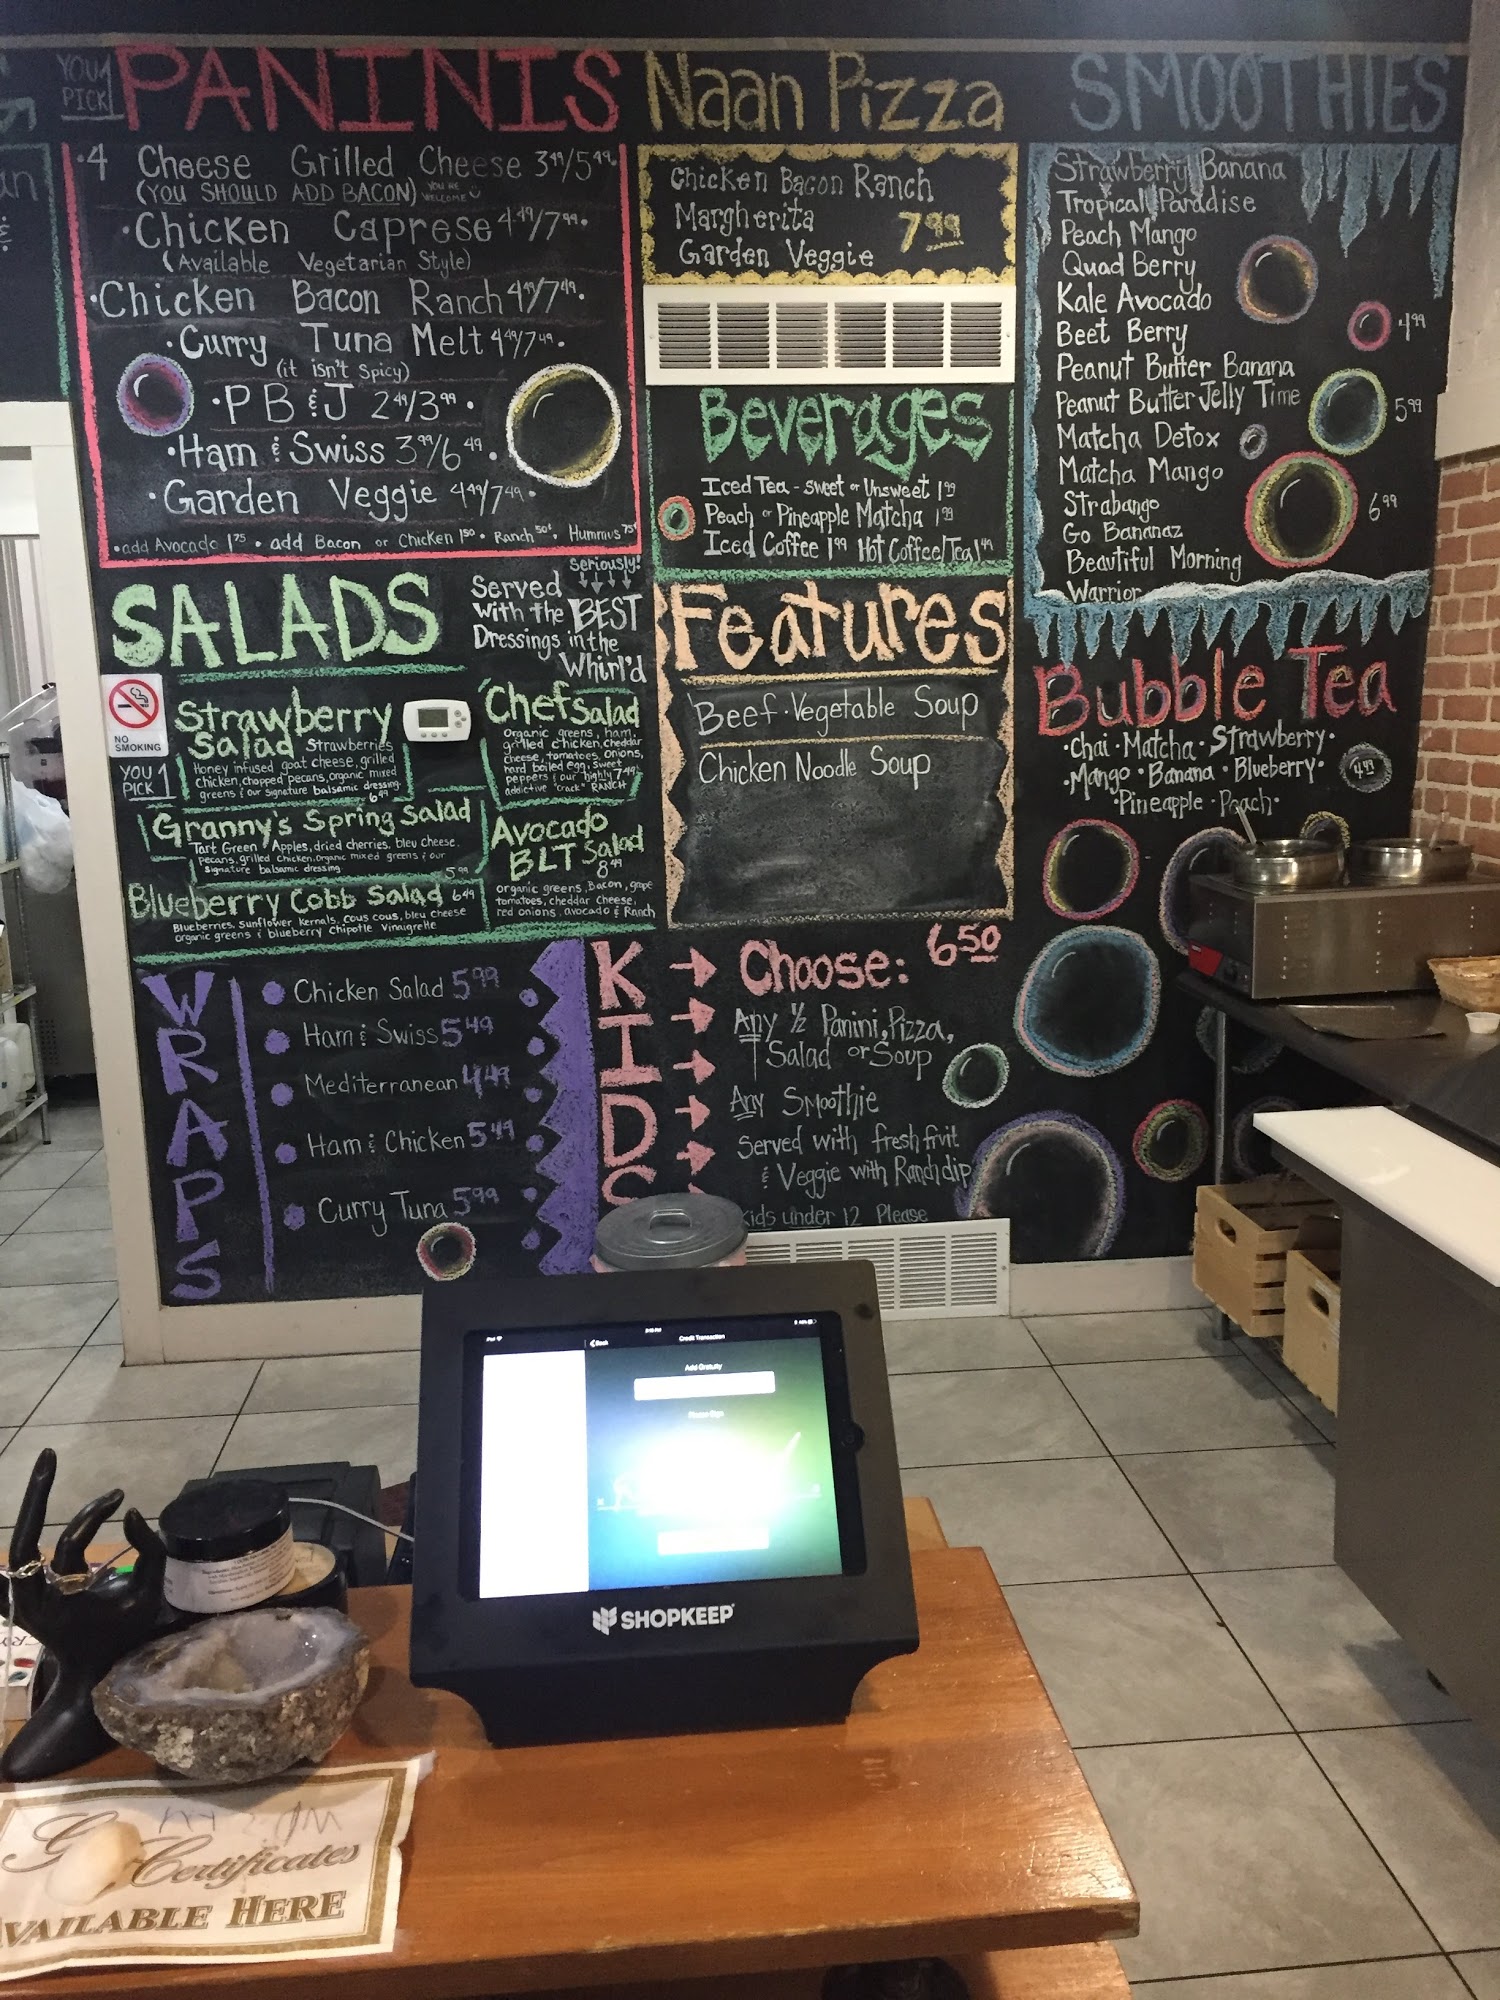 YOU
PICK 1
PANINIS
• 4 Cheese Grilled Cheese 3.49/5.49.
(YOU SHOULD ADD BACON) YOU'RE WELCOME
• Chicken Caprese 4.49/7.99.
(Available Vegetarian Style)
• Chicken Bacon Ranch 4.49/7.49.
• Curry Tuna Melt 4.49/7.49.
(it isn't Spicy)
• PB & J 2.49/3.99.
• Ham & Swiss 3.99/6.49.
• Garden Veggie 4.49/7.49.
• add Avocado 1.75 • add Bacon or Chicken 1.50 • Ranch 50¢ • Hummus 75¢
Naan Pizza
Chicken Bacon Ranch
Margherita
7.99
Garden Veggie
SMOOTHIES
Strawberry Banana
Tropical Paradise
Peach Mango
Quad Berry
Kale Avocado
Beet Berry
Peanut Butter Banana
Peanut Butter Jelly Time
Matcha Detox
Matcha Mango
Strabango
Go Bananaz
Beautiful Morning
Warrior
4.99
5.99
6.99
Beverages
Iced Tea - Sweet or Unsweet 1.99
Peach or Pineapple Matcha 1.99
Iced Coffee 1.99 Hot Coffee/Tea 1.49
SALADS
Seriously!
Served
With the BEST
Dressings in the
Whirl'd
NO
SMOKING
YOU
PICK 1
Strawberry
Salad Strawberries
Honey infused goat cheese, grilled
chicken, chopped pecans, organic mixed
greens & our signature balsamic dressing.
6.49
Chef Salad
Organic greens, ham,
grilled chicken, cheddar
cheese, tomatoes, onions,
hard boiled egg, sweet
peppers & our highly 7.49
addictive "crack" RANCH
Granny's Spring Salad
Tart Green Apples, dried cherries, bleu cheese,
Pecans, grilled chicken, organic mixed greens & our
signature balsamic dressing
5.99
Avocado
BLT Salad
8.49
organic greens, Bacon, grape
tomatoes, cheddar cheese,
red onions, avocado & Ranch
Blueberry Cobb Salad 6.49
Blueberries, sunflower kernals, cous cous, bleu cheese
organic greens & blueberry Chipotle Vinaigrette
Features
Beef-Vegetable Soup
Chicken Noodle Soup
Bubble Tea
• Chai • Matcha • Strawberry •
• Mango • Banana • Blueberry •
4.49
• Pineapple • Peach •
WRAPS
Chicken Salad 5.99
Ham & Swiss 5.49
Mediterranean 4.49
Ham & Chicken 5.49
Curry Tuna 5.99
KIDS
Choose: 6.50
Any 1/2 Panini, Pizza,
Salad or Soup
Any Smoothie
Served with fresh fruit
& Veggie with Ranch dip
Kids under 12 Please
Back
Credit Transaction
Add Gratuity
Please Sign
SHOPKEEP
Certificates
AVAILABLE HERE